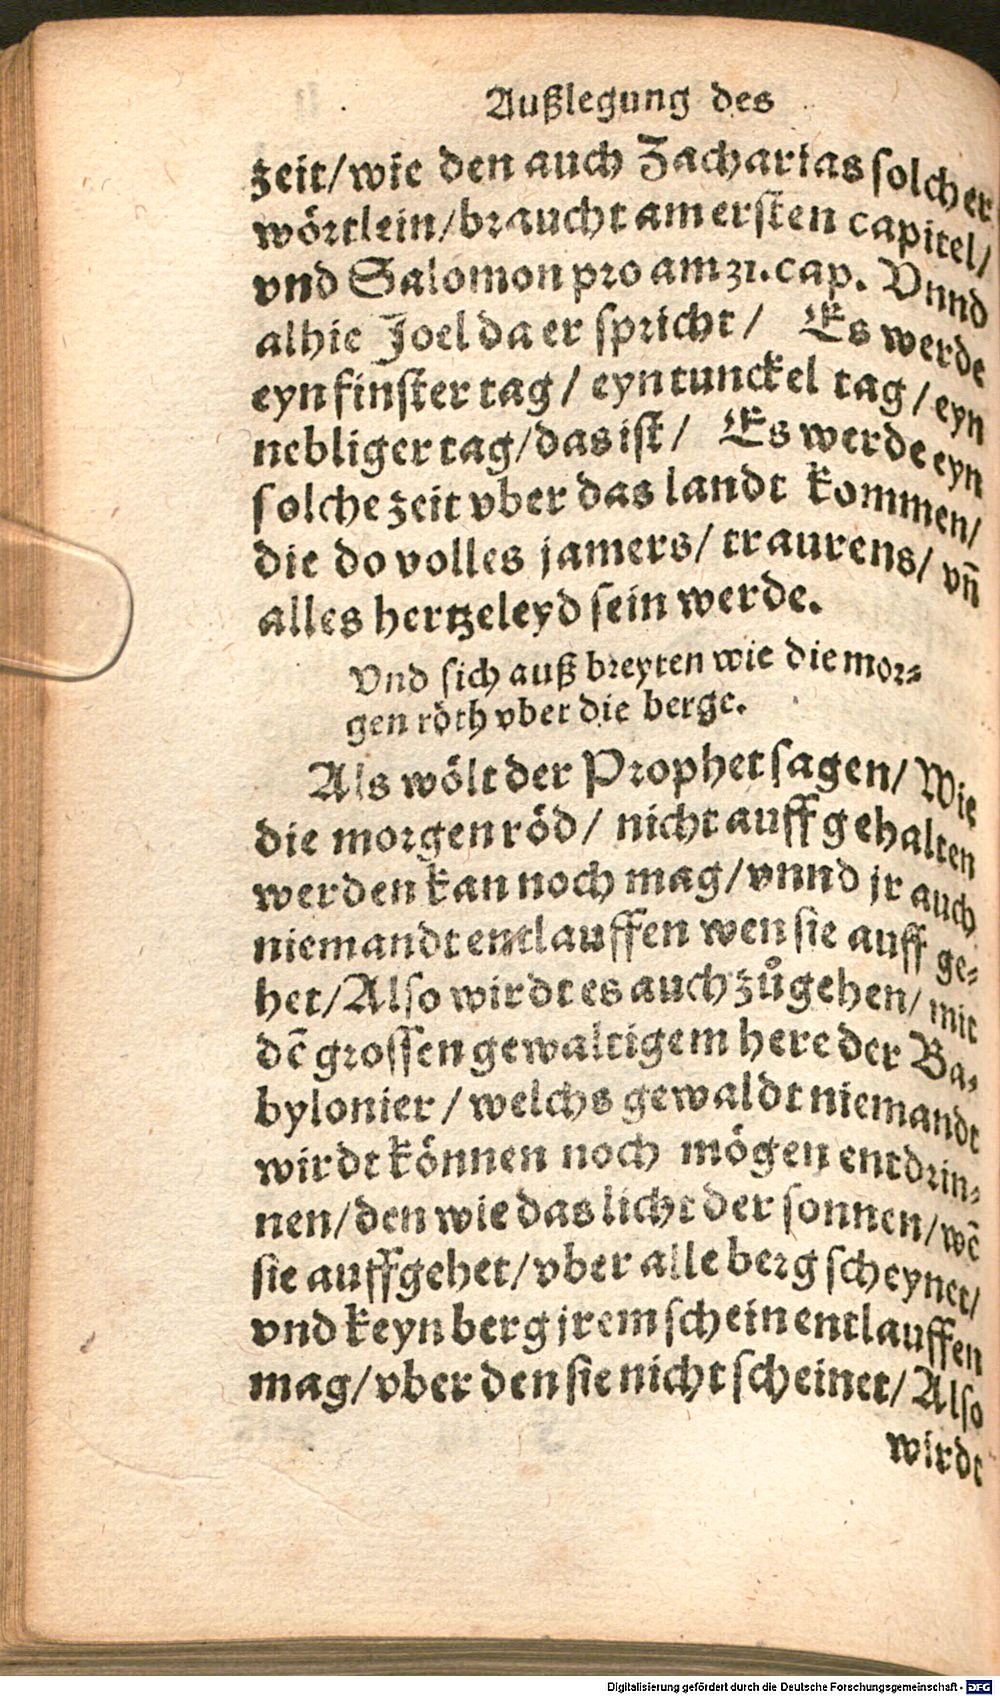 Außlegung des
zeit/wie den auch Zacharias solcher
wörtlein/braucht am ersten capitel/
vnd Salomon pro am 31. cap. Vnnd
alhie Joel da er spricht/ Es werde
eyn finster tag/ eyn tunckel tag/ eyn
nebliger tag/das ist/ Es werde eyn
solche zeit vber das landt kommen/
die do volles jamers/ traurens/ vñ
alles hertzeleyd sein werde.
Vnd sich auß breyten wie die mor⸗
gen röth vber die berge.
Als wölt der Prophet sagen/ Wie
die morgen röd/ nicht auff gehalten
werden kan noch mag/vnnd jr auch
niemandt entlauffen wen sie auff ge⸗
het/Also wirdt es auch zůgehen/ mit
dē grossen gewaltigem here der Ba⸗
bylonier/ welchs gewaldt niemandt
wirdt können noch mögen entdrin⸗
nen/den wie das licht der sonnen/wē
sie auffgehet/vber alle berg scheynet/
vnd keyn berg jrem schein entlauffen
mag/vber den sie nicht scheinet/ Also
wirdt
Digitalisierung gefördert durch die Deutsche Forschungsgemeinschaft - DFG